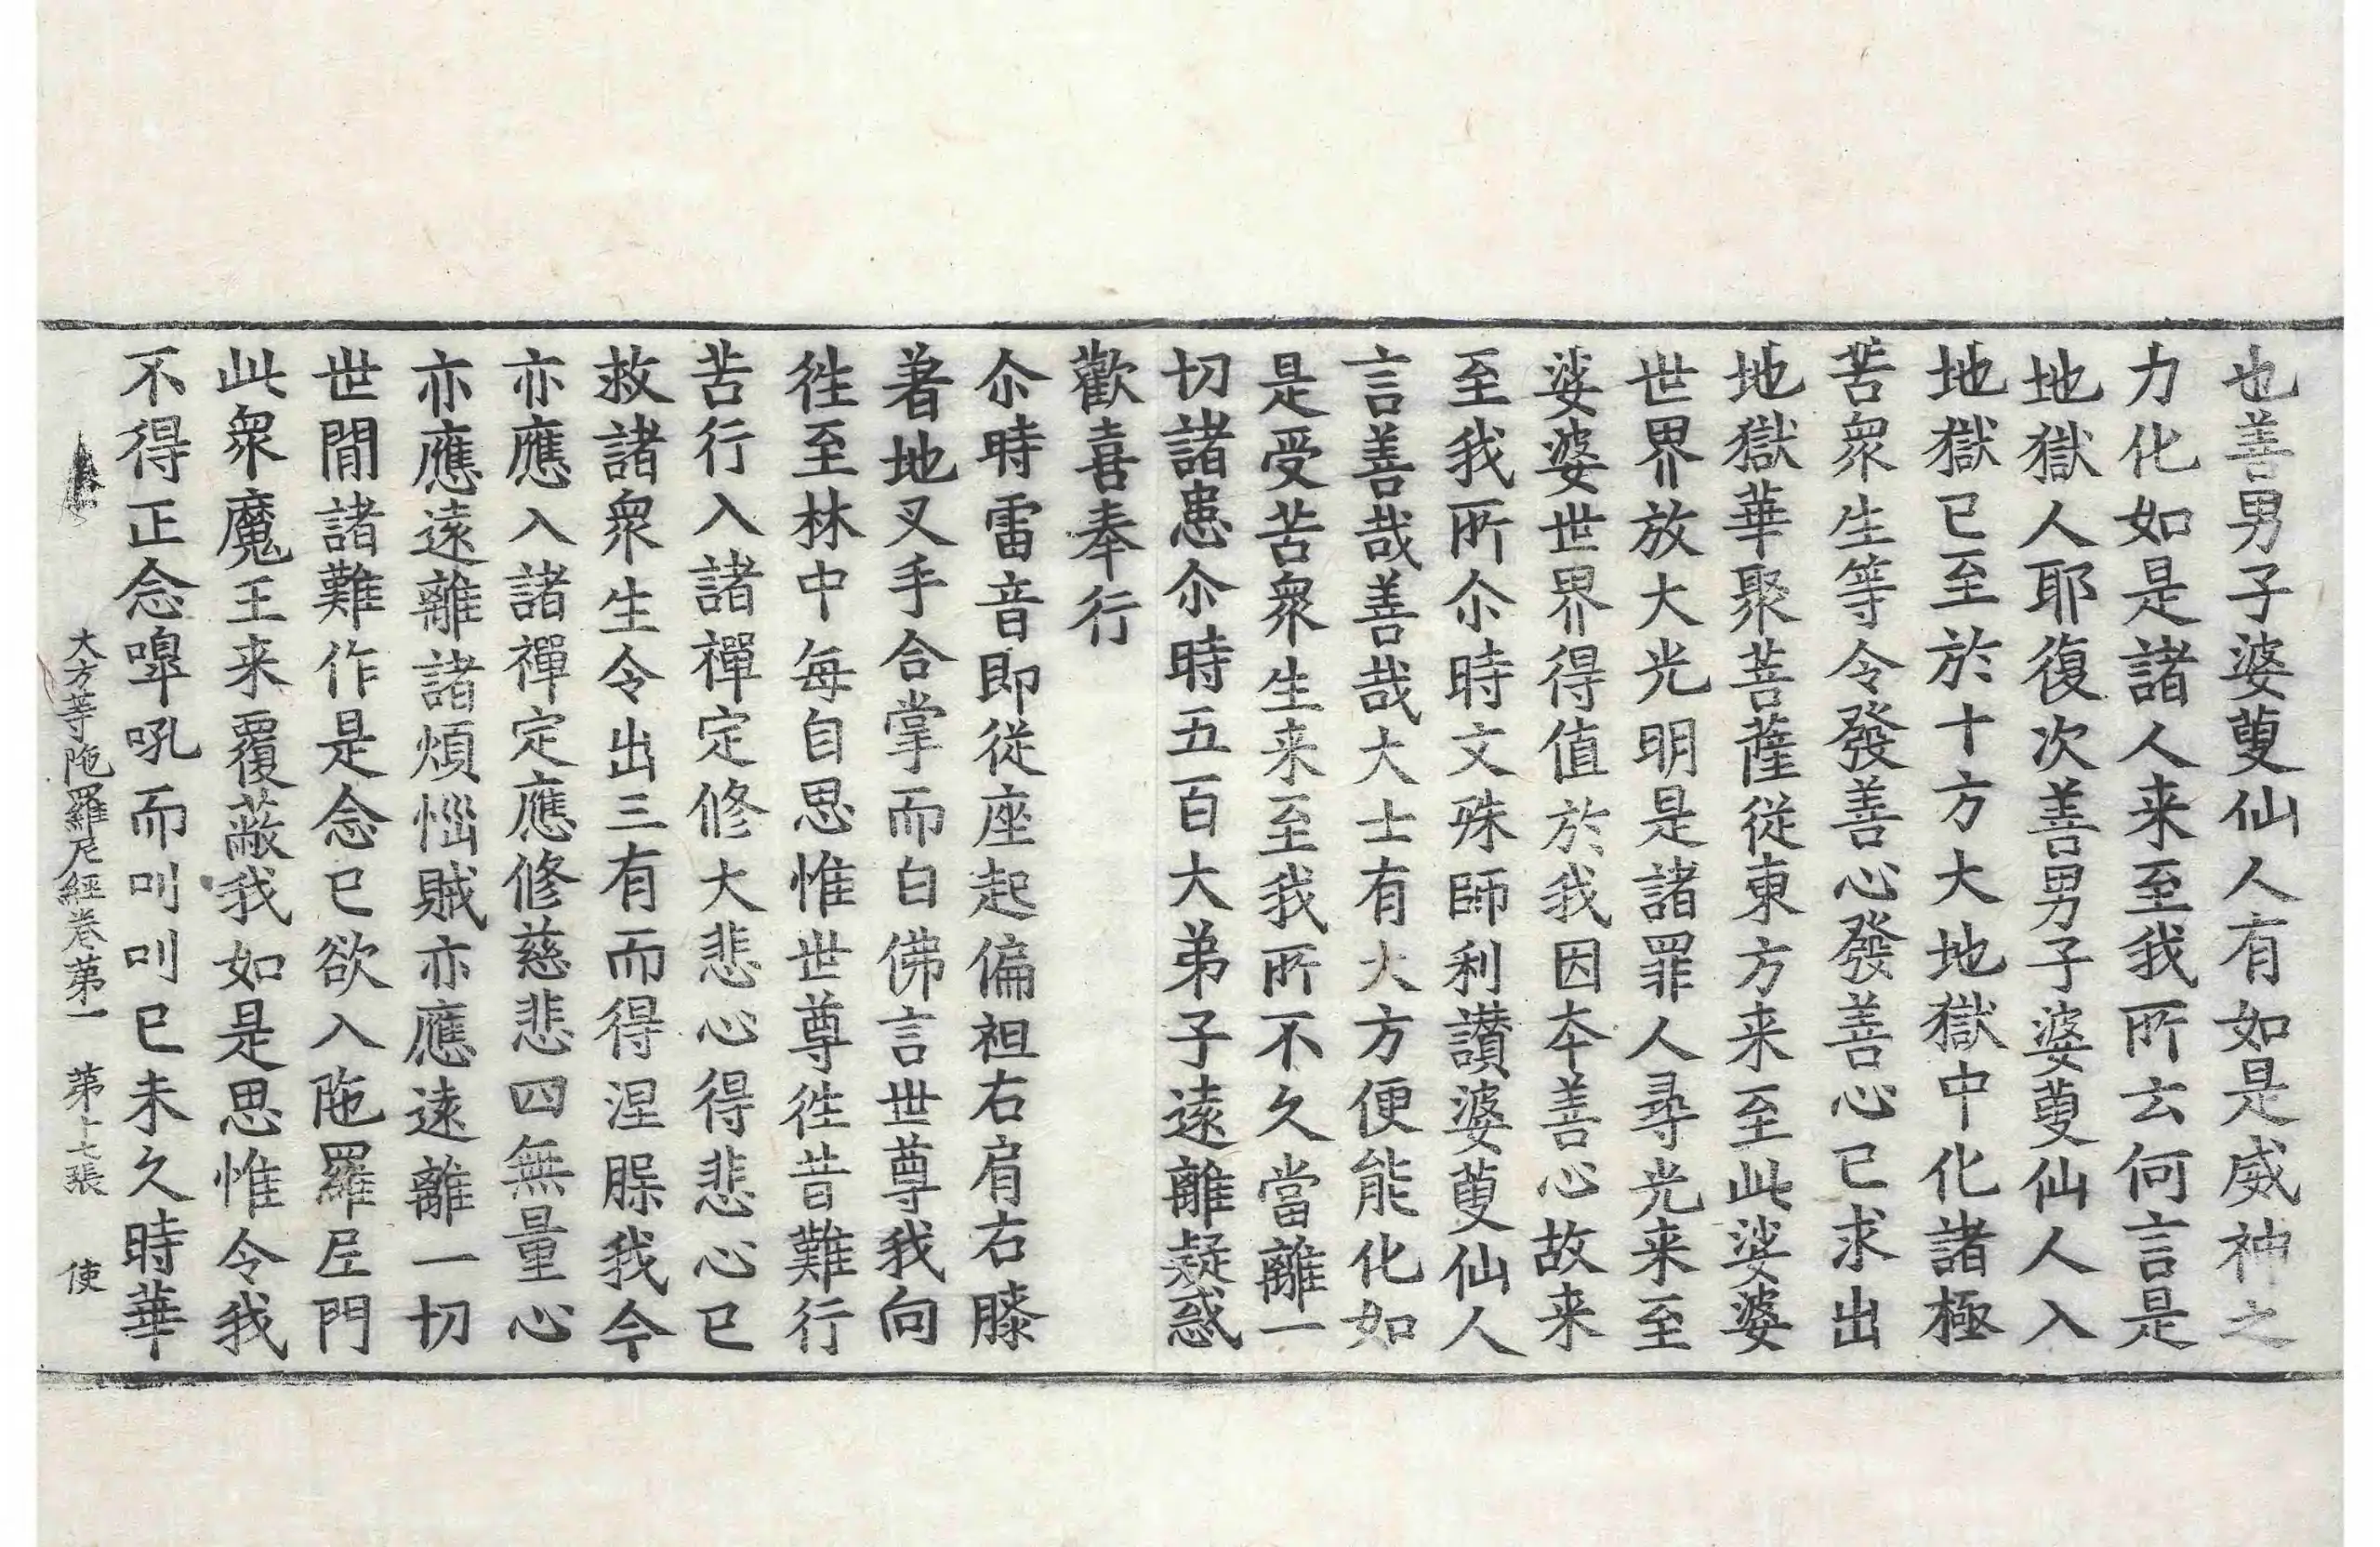 也善男子婆藪仙人有如是威神之
力化如是諸人来至我所云何言是
地獄人耶復次善男子婆藪仙人入
地獄已至於十方大地獄中化諸極
苦衆生等令發善心發善心已求出
地獄華聚菩薩從東方来至此娑婆
世界放大光明是諸罪人尋光来至
娑婆世界得值於我因本善心故来
至我所尒時文殊師利讃婆藪仙人
言善哉善哉大士有大方便能化如
是受苦衆生来至我所不久當離一
切諸患尒時五百大弟子遠離疑惑
歡喜奉行
尒時雷音即從座起偏袒右肩右膝
著地叉手合掌而白佛言世尊我向
徃至林中每自思惟世尊徃昔難行
苦行入諸禪定修大悲心得悲心已
救諸衆生令出三有而得涅脲我今
亦應入諸禪定應修慈悲四無量心
亦應遠離諸煩惱賊亦應遠離一切
世間諸難作是念已欲入陁羅𡰱門
此衆魔王来覆蔽我如是思惟令我
不得正念嘷吼而叫叫已未久時華
大方等陁羅尼經卷第一　第十七張　使